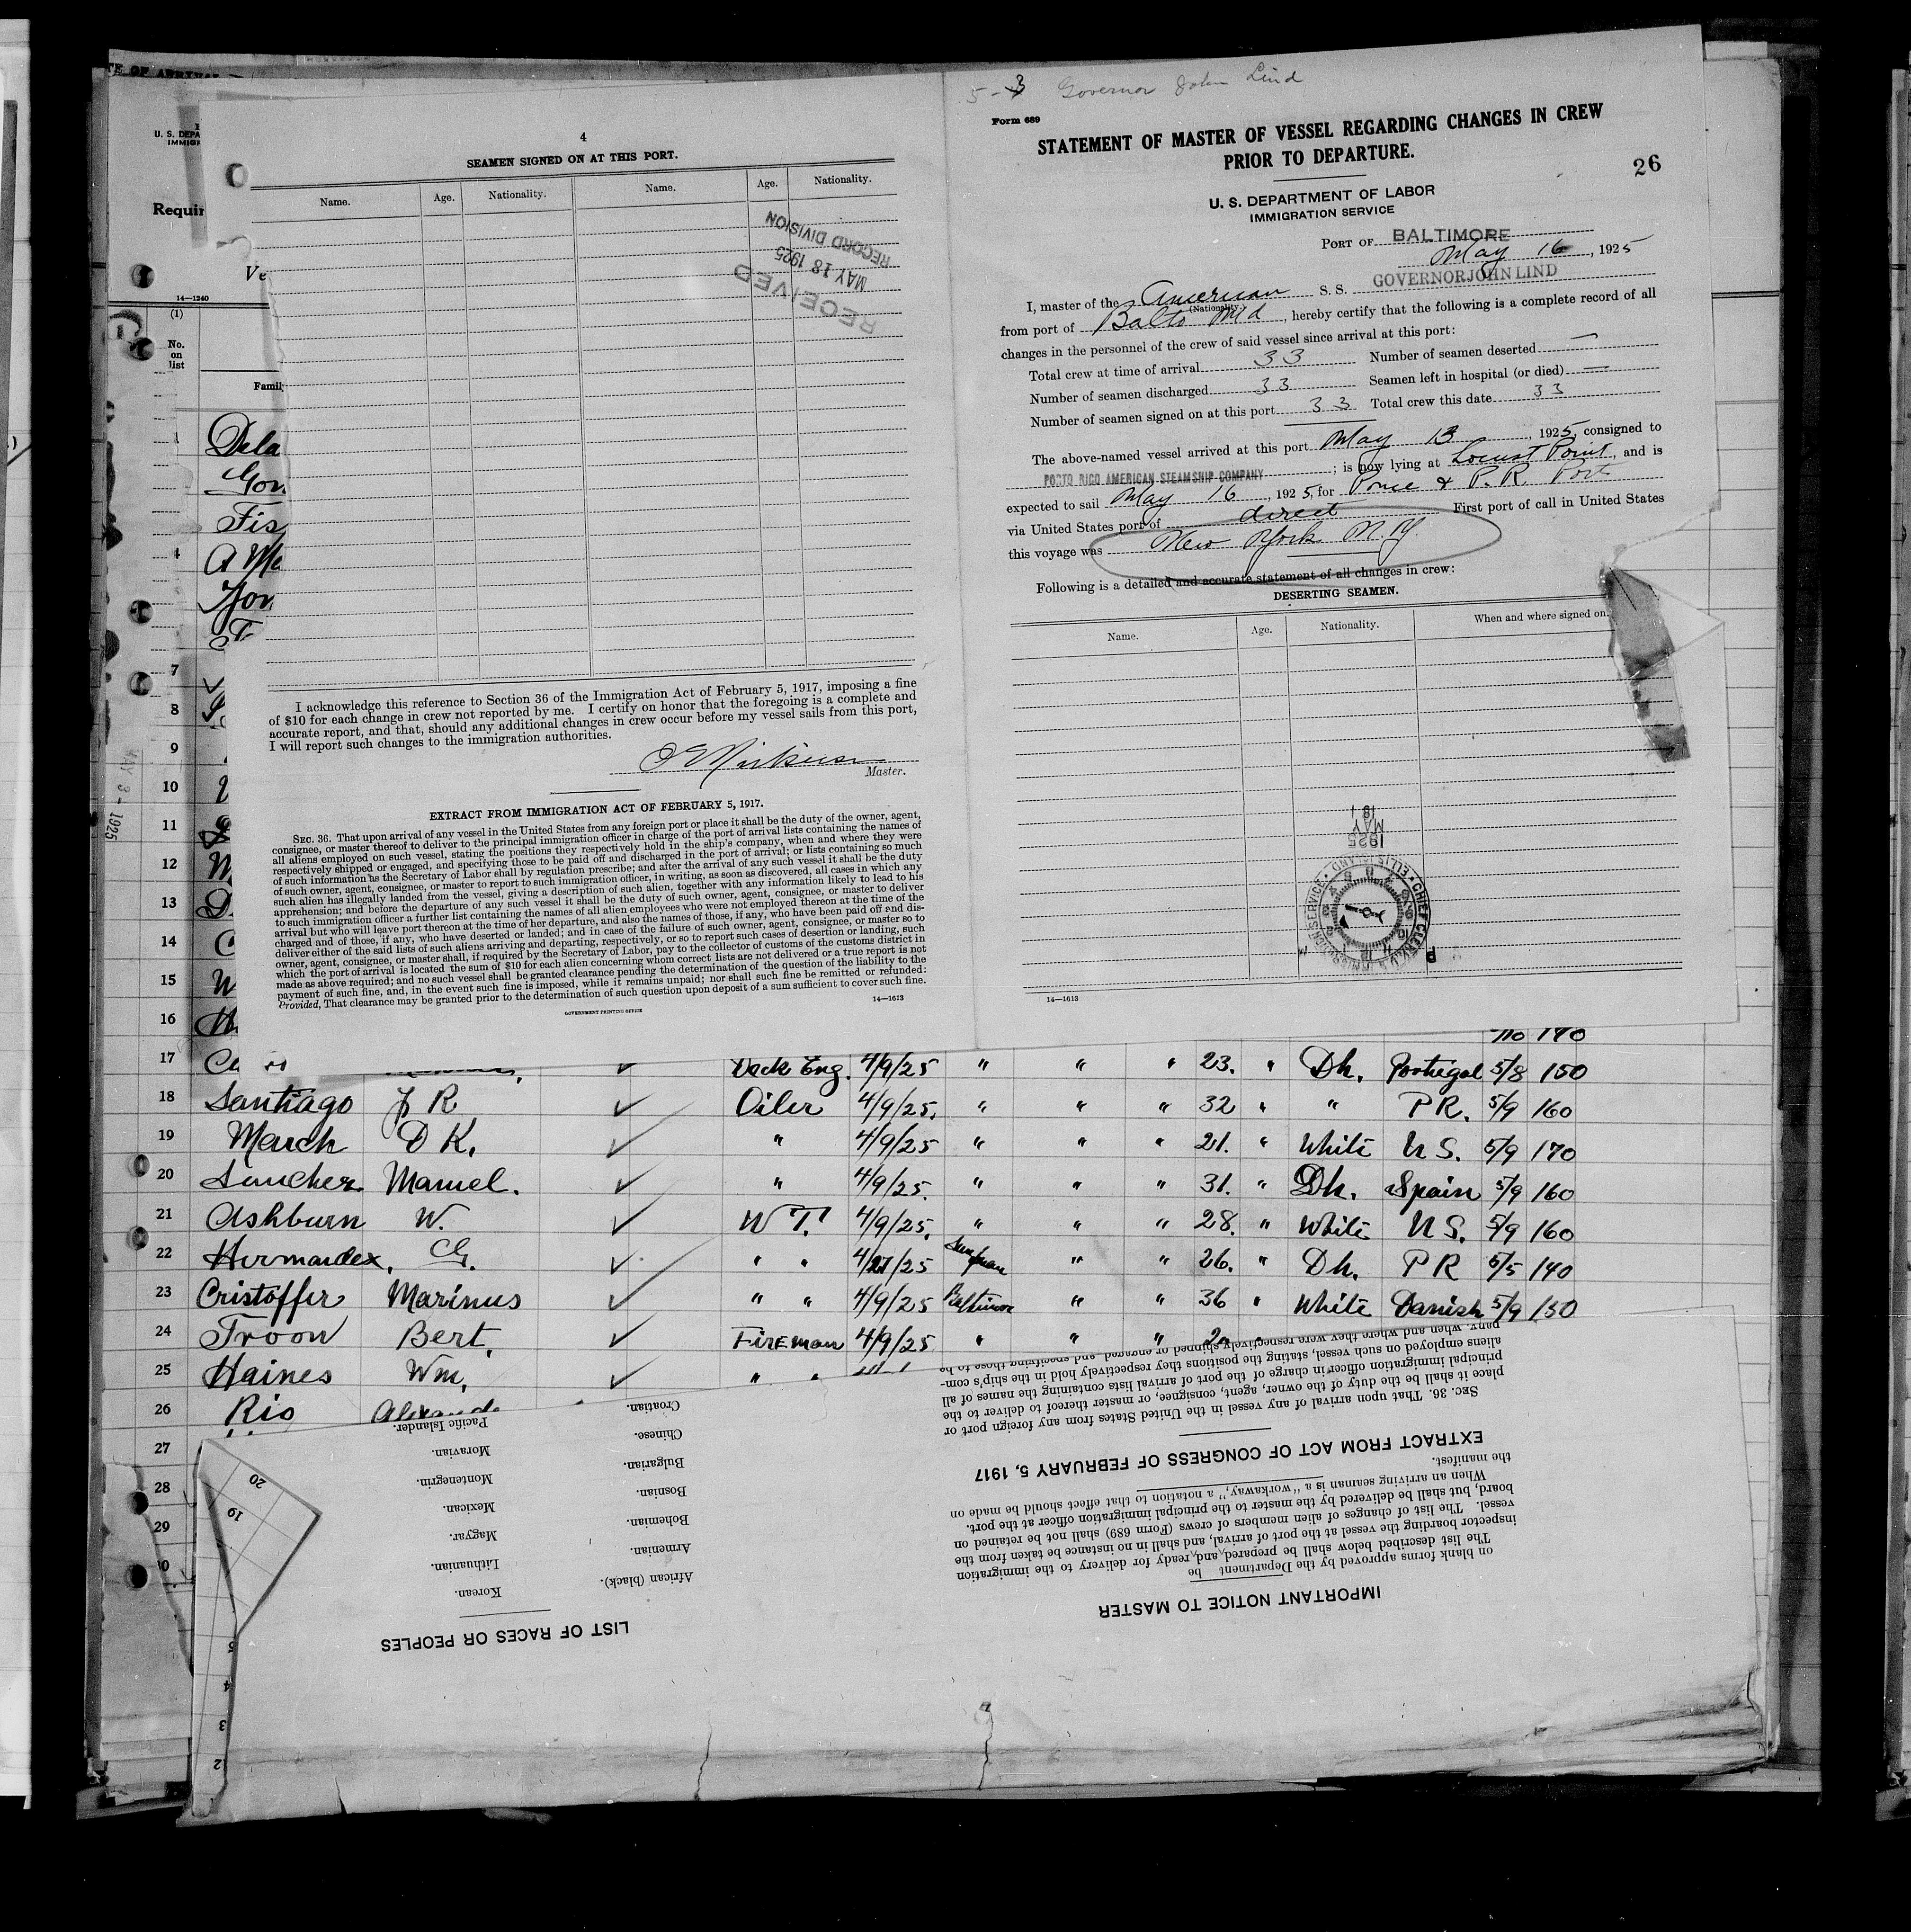 TE OF ARRIVAL
U. S. DEPA
IMMIGR
Requir
Ve
14—1240
(1)
No.
on
list
Famil
Dela
Gon
Fis
A Mc
4
SEAMEN SIGNED ON AT THIS PORT.
Name. Age. Nationality. Name. Age. Nationality.
RECORD DIVISION
MAY 18 1925
RECEIVED
I acknowledge this reference to Section 36 of the Immigration Act of February 5, 1917, imposing a fine
of $10 for each change in crew not reported by me. I certify on honor that the foregoing is a complete and
accurate report, and that, should any additional changes in crew occur before my vessel sails from this port,
I will report such changes to the immigration authorities.
Master.
EXTRACT FROM IMMIGRATION ACT OF FEBRUARY 5, 1917.
SEC. 36. That upon arrival of any vessel in the United States from any foreign port or place it shall be the duty of the owner, agent,
consignee, or master thereof to deliver to the principal immigration officer in charge of the port of arrival lists containing the names of
all aliens employed on such vessel, stating the positions they respectively hold in the ship's company, when and where they were
respectively shipped or engaged, and specifying those to be paid off and discharged in the port of arrival; or lists containing so much
of such information as the Secretary of Labor shall by regulation prescribe; and after the arrival of any such vessel it shall be the duty
of such owner, agent, consignee, or master to report to such immigration officer, in writing, as soon as discovered, all cases in which any
such alien has illegally landed from the vessel, giving a description of such alien, together with any information likely to lead to his
apprehension; and before the departure of any such vessel it shall be the duty of such owner, agent, consignee, or master to deliver
to such immigration officer a further list containing the names of all alien employees who were not employed thereon at the time of the
arrival but who will leave port thereon at the time of her departure, and also the names of those, if any, who have been paid off and dis-
charged and of those, if any, who have deserted or landed; and in case of the failure of such owner, agent, consignee, or master so to
deliver either of the said lists of such aliens arriving and departing, respectively, or so to report such cases of desertion or landing, such
owner, agent, consignee, or master shall, if required by the Secretary of Labor, pay to the collector of customs of the customs district in
which the port of arrival is located the sum of $10 for each alien concerning whom correct lists are not delivered or a true report is not
made as above required; and no such vessel shall be granted clearance pending the determination of the question of the liability to the
payment of such fine, and, in the event such fine is imposed, while it remains unpaid; nor shall such fine be remitted or refunded:
Provided, That clearance may be granted prior to the determination of such question upon deposit of a sum sufficient to cover such fine.
14—1613
GOVERNMENT PRINTING OFFICE
5-3 Governor John Lind
Form 689
STATEMENT OF MASTER OF VESSEL REGARDING CHANGES IN CREW
PRIOR TO DEPARTURE.
26
U. S. DEPARTMENT OF LABOR
IMMIGRATION SERVICE
PORT OF BALTIMORE
May 16, 1925
I, master of the American S. S. GOVERNOR JOHN LIND
(Nationality.)
from port of Balto Md, hereby certify that the following is a complete record of all
changes in the personnel of the crew of said vessel since arrival at this port:
Total crew at time of arrival 33 Number of seamen deserted —
Number of seamen discharged 33 Seamen left in hospital (or died) —
Number of seamen signed on at this port 33 Total crew this date 33
The above-named vessel arrived at this port May 13, 1925, consigned to
PORTO RICO AMERICAN STEAMSHIP COMPANY; is now lying at Locust Point, and is
expected to sail May 16, 1925, for Ponce & P. R. Ports
via United States port of direct First port of call in United States
this voyage was New York N. Y.
Following is a detailed and accurate statement of all changes in crew:
DESERTING SEAMEN.
Name. Age. Nationality. When and where signed on.
1925
MAY
18
CHIEF CLERK, U.S. IMMIGRATION SERVICE • ELLIS ISLAND •
14—1613
MAY 3 - 1925
7
8
9
10
11
12
13
14
15
16 no 140
17 Deck Eng. 4/9/25 " " " 23. " Dk. Portugal 5/8 150
18 Santiago J R ✓ Oiler 4/9/25. " " " 32 " " P R. 5/9 160
19 March D K. ✓ " 4/9/25 " " " 21. " White U S. 5/9 170
20 Sancher Manuel. ✓ " 4/9/25. " " " 31. " Dk. Spain 5/9 160
21 Ashburn W. ✓ W T. 4/9/25. " " " 28. " White U S. 5/9 160
22 Hermandex, G. ✓ " " 4/27/25 San Juan " " 26. " Dk. P R 5/5 140
23 Cristoffer Marinus ✓ " " 4/9/25 Baltimore " " 36 " White Danish 5/9 150
24 Troon Bert, ✓ Fireman 4/9/25 " " "
25 Haines Wm, ✓ " "
26 Rio
27
28
29
30
20
19
5
4
3
2
IMPORTANT NOTICE TO MASTER
The list described below shall be prepared and ready for delivery to the immigration
on blank forms approved by the Department be
inspector boarding the vessel at the port of arrival, and shall in no instance be taken from the
vessel. The list of changes of alien members of crews (Form 689) shall not be retained on
board, but shall be delivered by the master to the principal immigration officer at the port.
When an arriving seaman is a "workaway," a notation to that effect should be made on
the manifest.
EXTRACT FROM ACT OF CONGRESS OF FEBRUARY 5, 1917
SEC. 36. That upon arrival of any vessel in the United States from any foreign port or
place it shall be the duty of the owner, agent, consignee, or master thereof to deliver to the
principal immigration officer in charge of the port of arrival lists containing the names of all
aliens employed on such vessel, stating the positions they respectively hold in the ship's com-
pany, when and where they were respectively shipped or engaged, and specifying those to be
LIST OF RACES OR PEOPLES
African (black). Korean.
Armenian. Lithuanian.
Bohemian. Magyar.
Bosnian. Mexican.
Bulgarian. Montenegrin.
Chinese. Moravian.
Croatian. Pacific Islander.